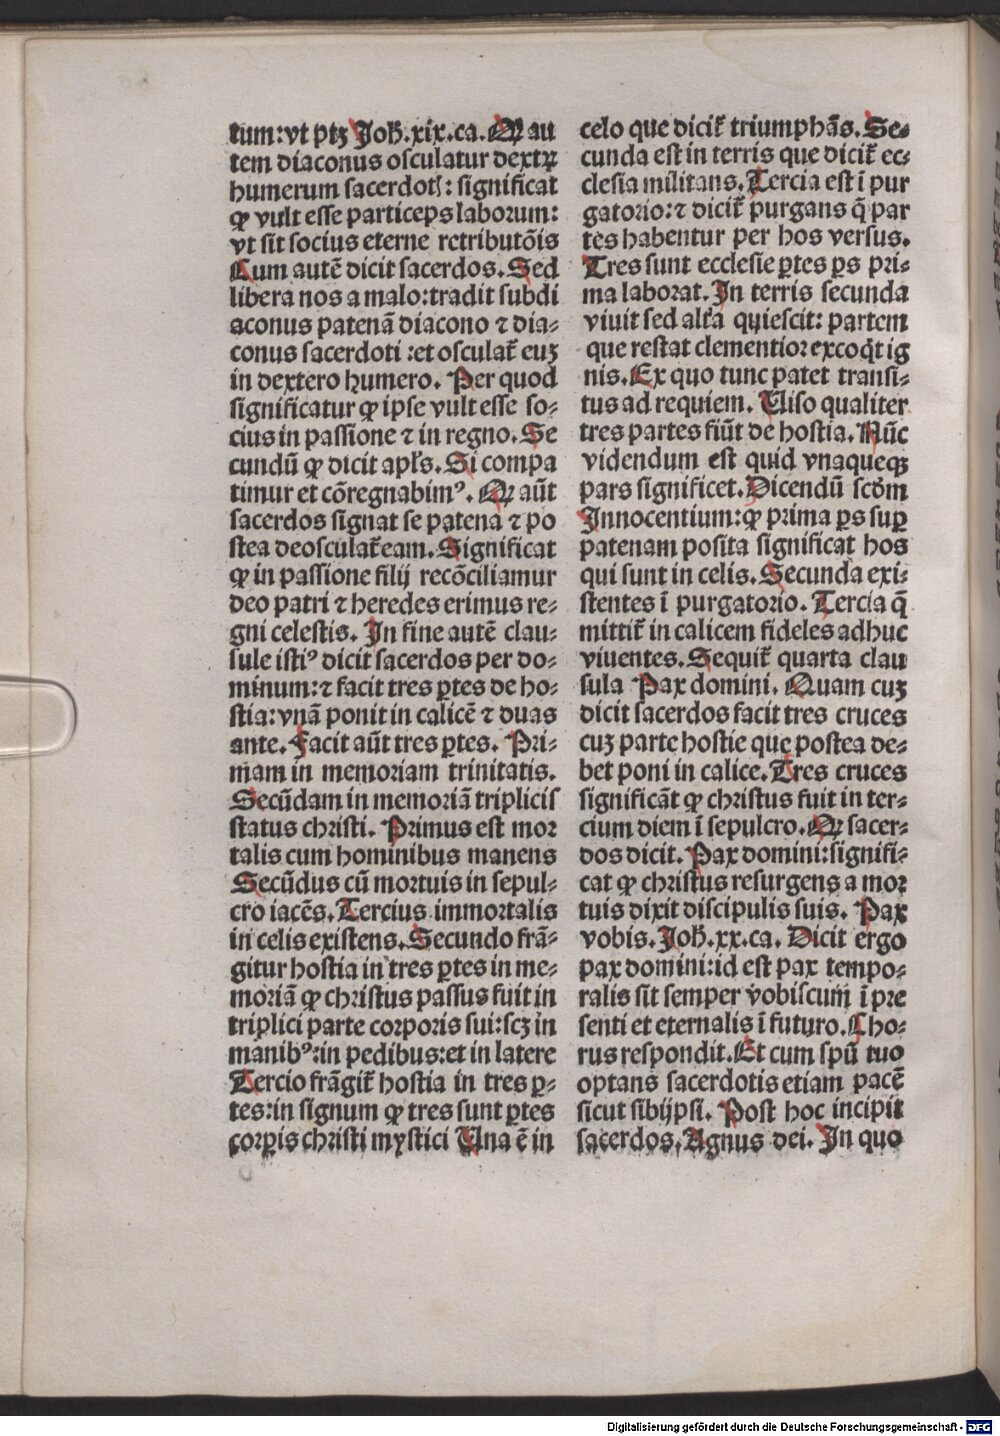 tum:vt ptꝫ Joh̄.xix.ca. Qꝛ au
tem diaconus osculatur dextꝝ
humerum sacerdotꝭ: significat
ꝙ vult esse particeps laborum:
vt sit socius eterne retributōis
Cum autē dicit sacerdos. Sed
libera nos a malo:tradit subdi
aconus patenā diacono ⁊ dia⸗
conus sacerdoti :et osculat̄ euꝫ
in dextero humero. Per quod
significatur ꝙ ipse vult esse so⸗
cius in passione ⁊ in regno. Se
cundū ꝙ dicit apl̄s. Si compa
timur et cōregnabimꝰ. Qꝛ aūt
sacerdos signat se patena ⁊ po
stea deosculat̄ eam. Significat
ꝙ in passione filij recōciliamur
deo patri ⁊ heredes erimus re⸗
gni celestis. In fine autē clau⸗
sule istiꝰ dicit sacerdos per do⸗
minum:⁊ facit tres ꝑtes de ho⸗
stia:vnā ponit in calicē ⁊ duas
ante. Facit aūt tres ꝑtes. Pri⸗
mam in memoriam trinitatis.
Secūdam in memoriā triplicis
status christi. Primus est moꝛ
talis cum hominibus manens
Secūdus cū moꝛtuis in sepul⸗
cro iacēs. Tercius immoꝛtalis
in celis existens. Secundo frā⸗
gitur hostia in tres ꝑtes in me⸗
moꝛiā ꝙ christus passus fuit in
triplici parte coꝛpoꝛis sui:scꝫ in
manibꝰ:in pedibus:et in latere
Tercio frāgit̄ hostia in tres ꝑ⸗
tes:in signum ꝙ tres sunt ꝑtes
coꝛꝑis christi mystici Una ē in
celo que dicit̄ triumphās. Se⸗
cunda est in terris que dicit̄ ec⸗
clesia militans. Tercia est ī pur
gatoꝛio:⁊ dicit̄ purgans q̄ par
tes habentur per hos versus.
Tres sunt ecclesie ꝑtes ꝑs pri⸗
ma laborat. In terris secunda
viuit sed alt̄a quiescit: partem
que restat clementioꝛ excoq̄t ig
nis. Ex quo tunc patet transi⸗
tus ad requiem. Uiso qualiter
tres partes fiūt de hostia. Nūc
videndum est quid vnaqueqꝫ
pars significet. Dicendū scd̄m
Innocentium:ꝙ prima ꝑs suꝑ
patenam posita significat hos
qui sunt in celis. Secunda exi⸗
stentes ī purgatoꝛio. Tercia q̄
mittit̄ in calicem fideles adhuc
viuentes. Sequit̄ quarta clau
sula Pax domini. Quam cuꝫ
dicit sacerdos facit tres cruces
cuꝫ parte hostie que postea de⸗
bet poni in calice. Tres cruces
significāt ꝙ christus fuit in ter⸗
cium diem ī sepulcro. Qꝛ sacer⸗
dos dicit. Pax domini:signifi⸗
cat ꝙ christus resurgens a moꝛ
tuis dixit discipulis suis. Pax
vobis. Joh̄.xx.ca. Dicit ergo
pax domini:id est pax tempo⸗
ralis sit semper vobiscum ī pre
senti et eternalis ī futuro. Cho⸗
rus respondit. Et cum spū tuo
optans sacerdotis etiam pacē
sicut sibijpsi. Post hoc incipit
sacerdos. Agnus dei. In quo
Digitalisierung gefördert durch die Deutsche Forschungsgemeinschaft - DFG